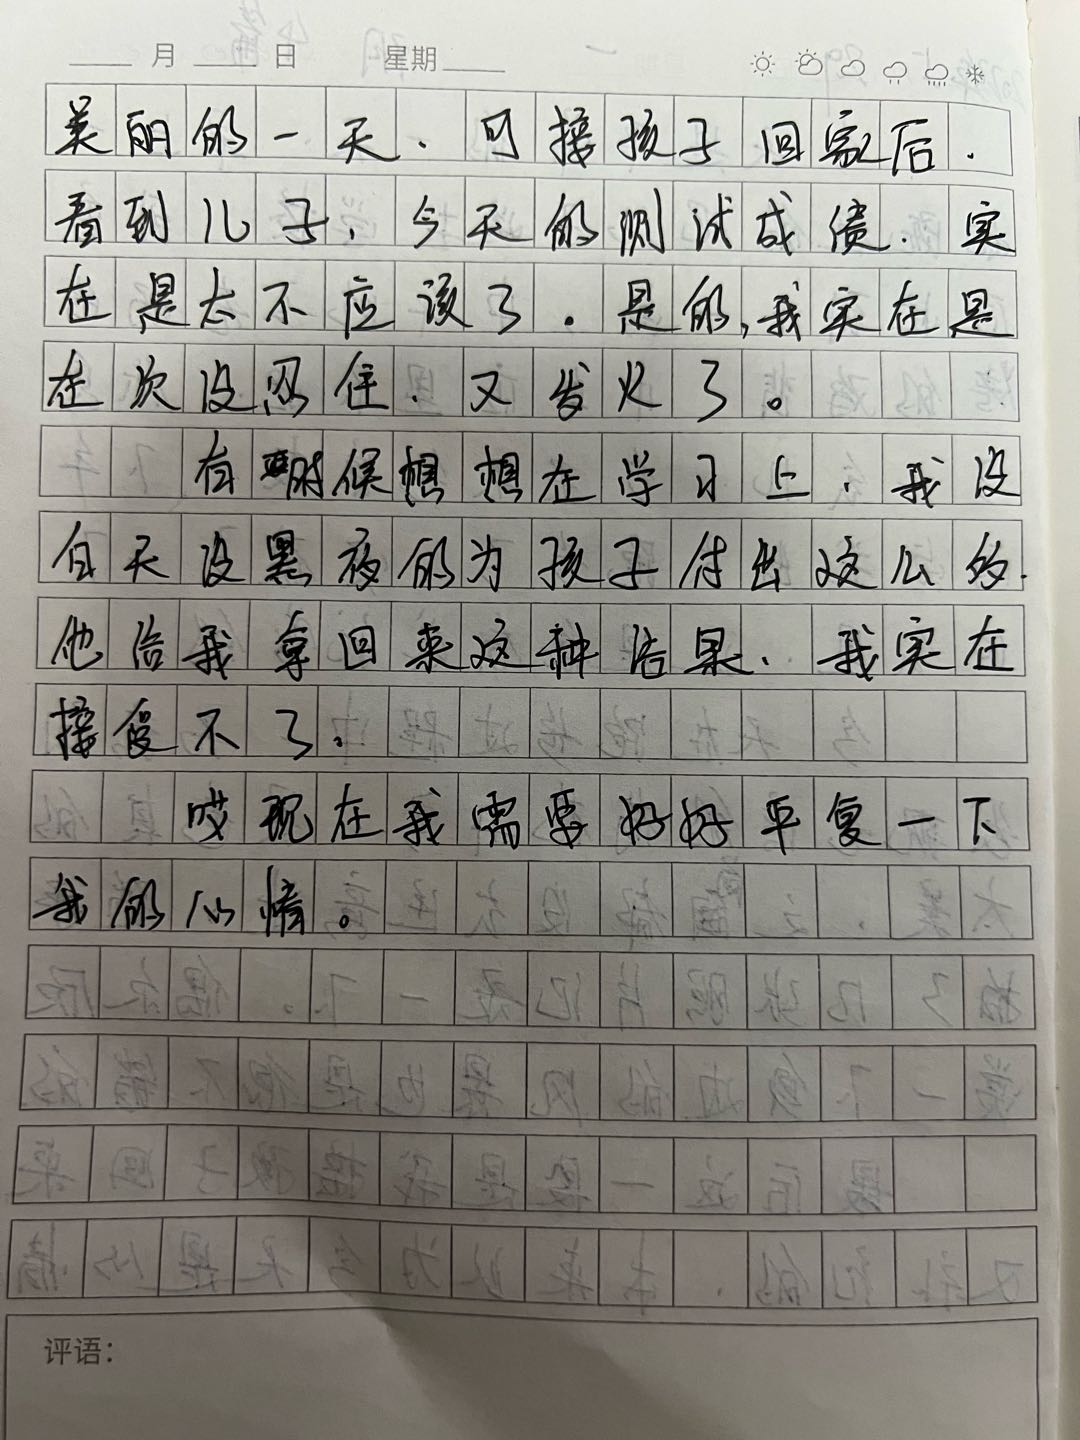 月 日 星期
美丽的一天.可接孩子回家后.
看到儿子,今天的测试成绩.实
在是太不应该了.是的,我实在是
在次没忍住.又发火了。
有时候想想在学习上,我没
白天没黑夜的为孩子付出这么多.
他给我拿回来这种结果.我实在
接受不了.
哎现在我需要好好平复一下
我的心情。
评语: